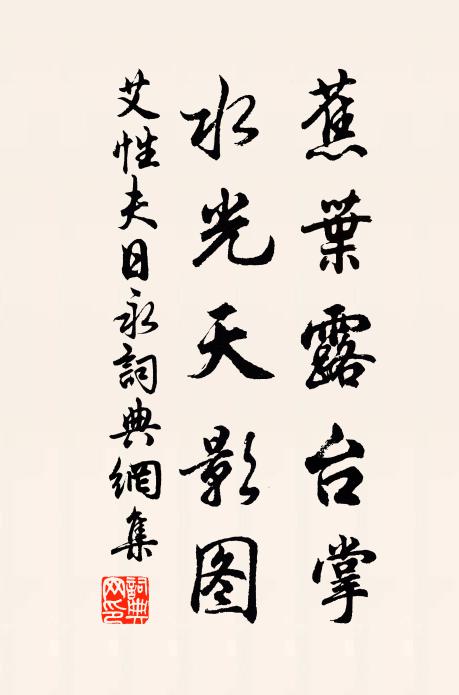 蕉葉露台掌
水光天影图
艾性夫日永詞典網集
詞典网印